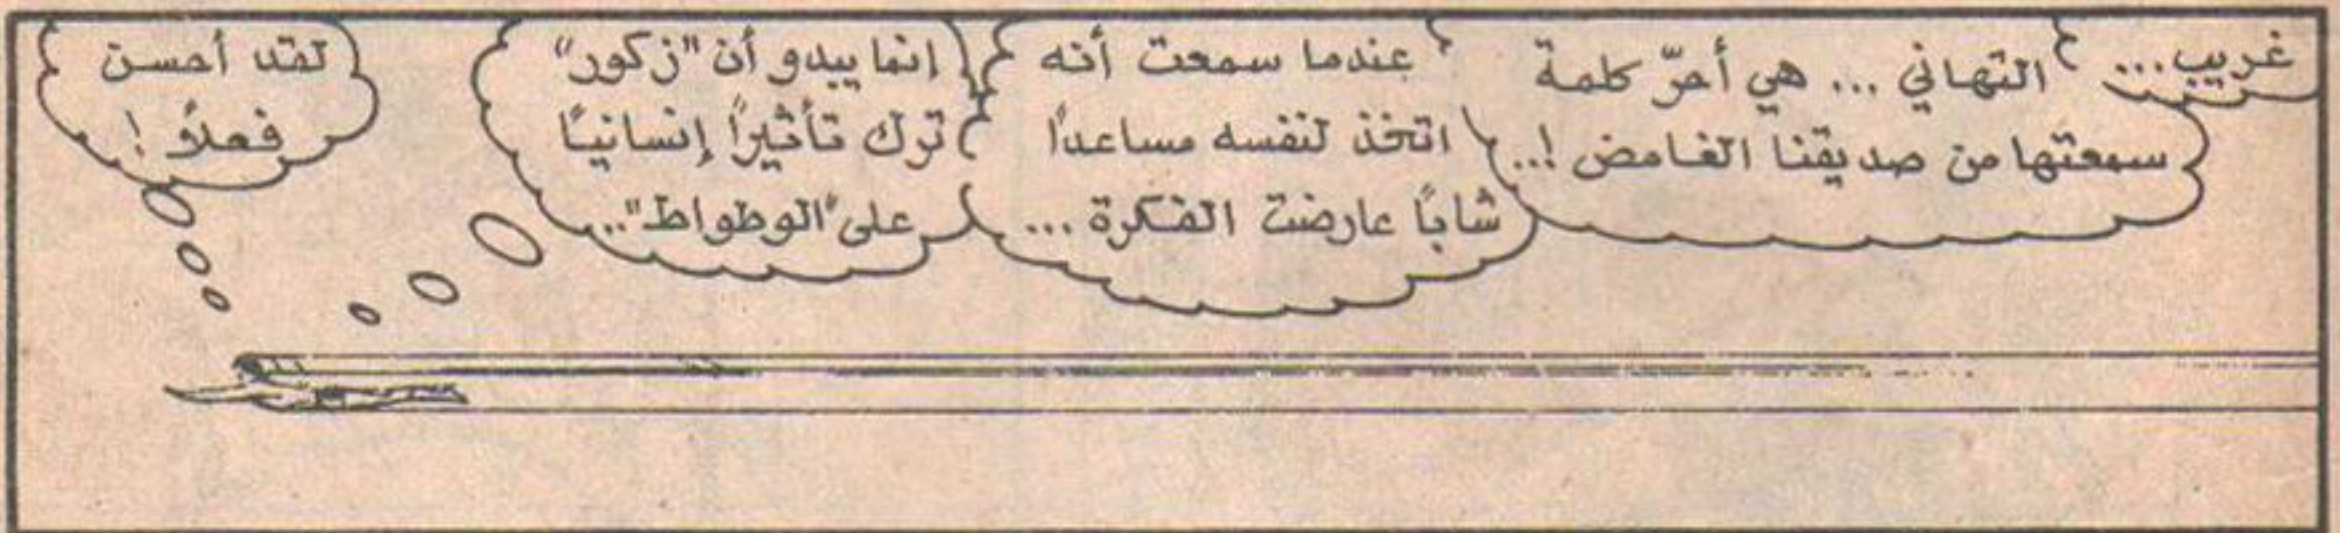 غريب...
التهاني ... هي أحرّ كلمة
سمعتها من صديقنا الغامض !..
عندما سمعت أنه
اتخذ لنفسه مساعداً
شاباً عارضت الفكرة ...
إنما يبدو أن "زكور"
ترك تأثيراً إنسانياً
على "الوطواط"..
لقد أحسن
فعلاً !